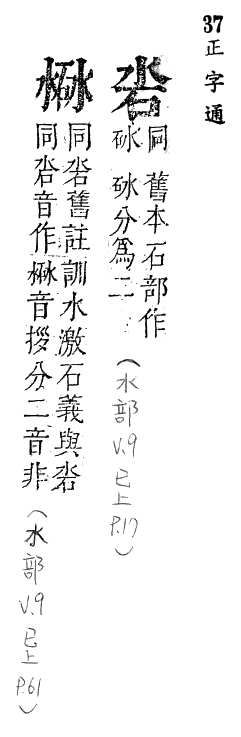 37 正字通
同 舊本石部作
砅 砅分爲二
(水部 V.9 巳上 P.17)
同舊註訓水激石義與
同音作音拶分二音非
(水部 V.9 巳上 P.61)